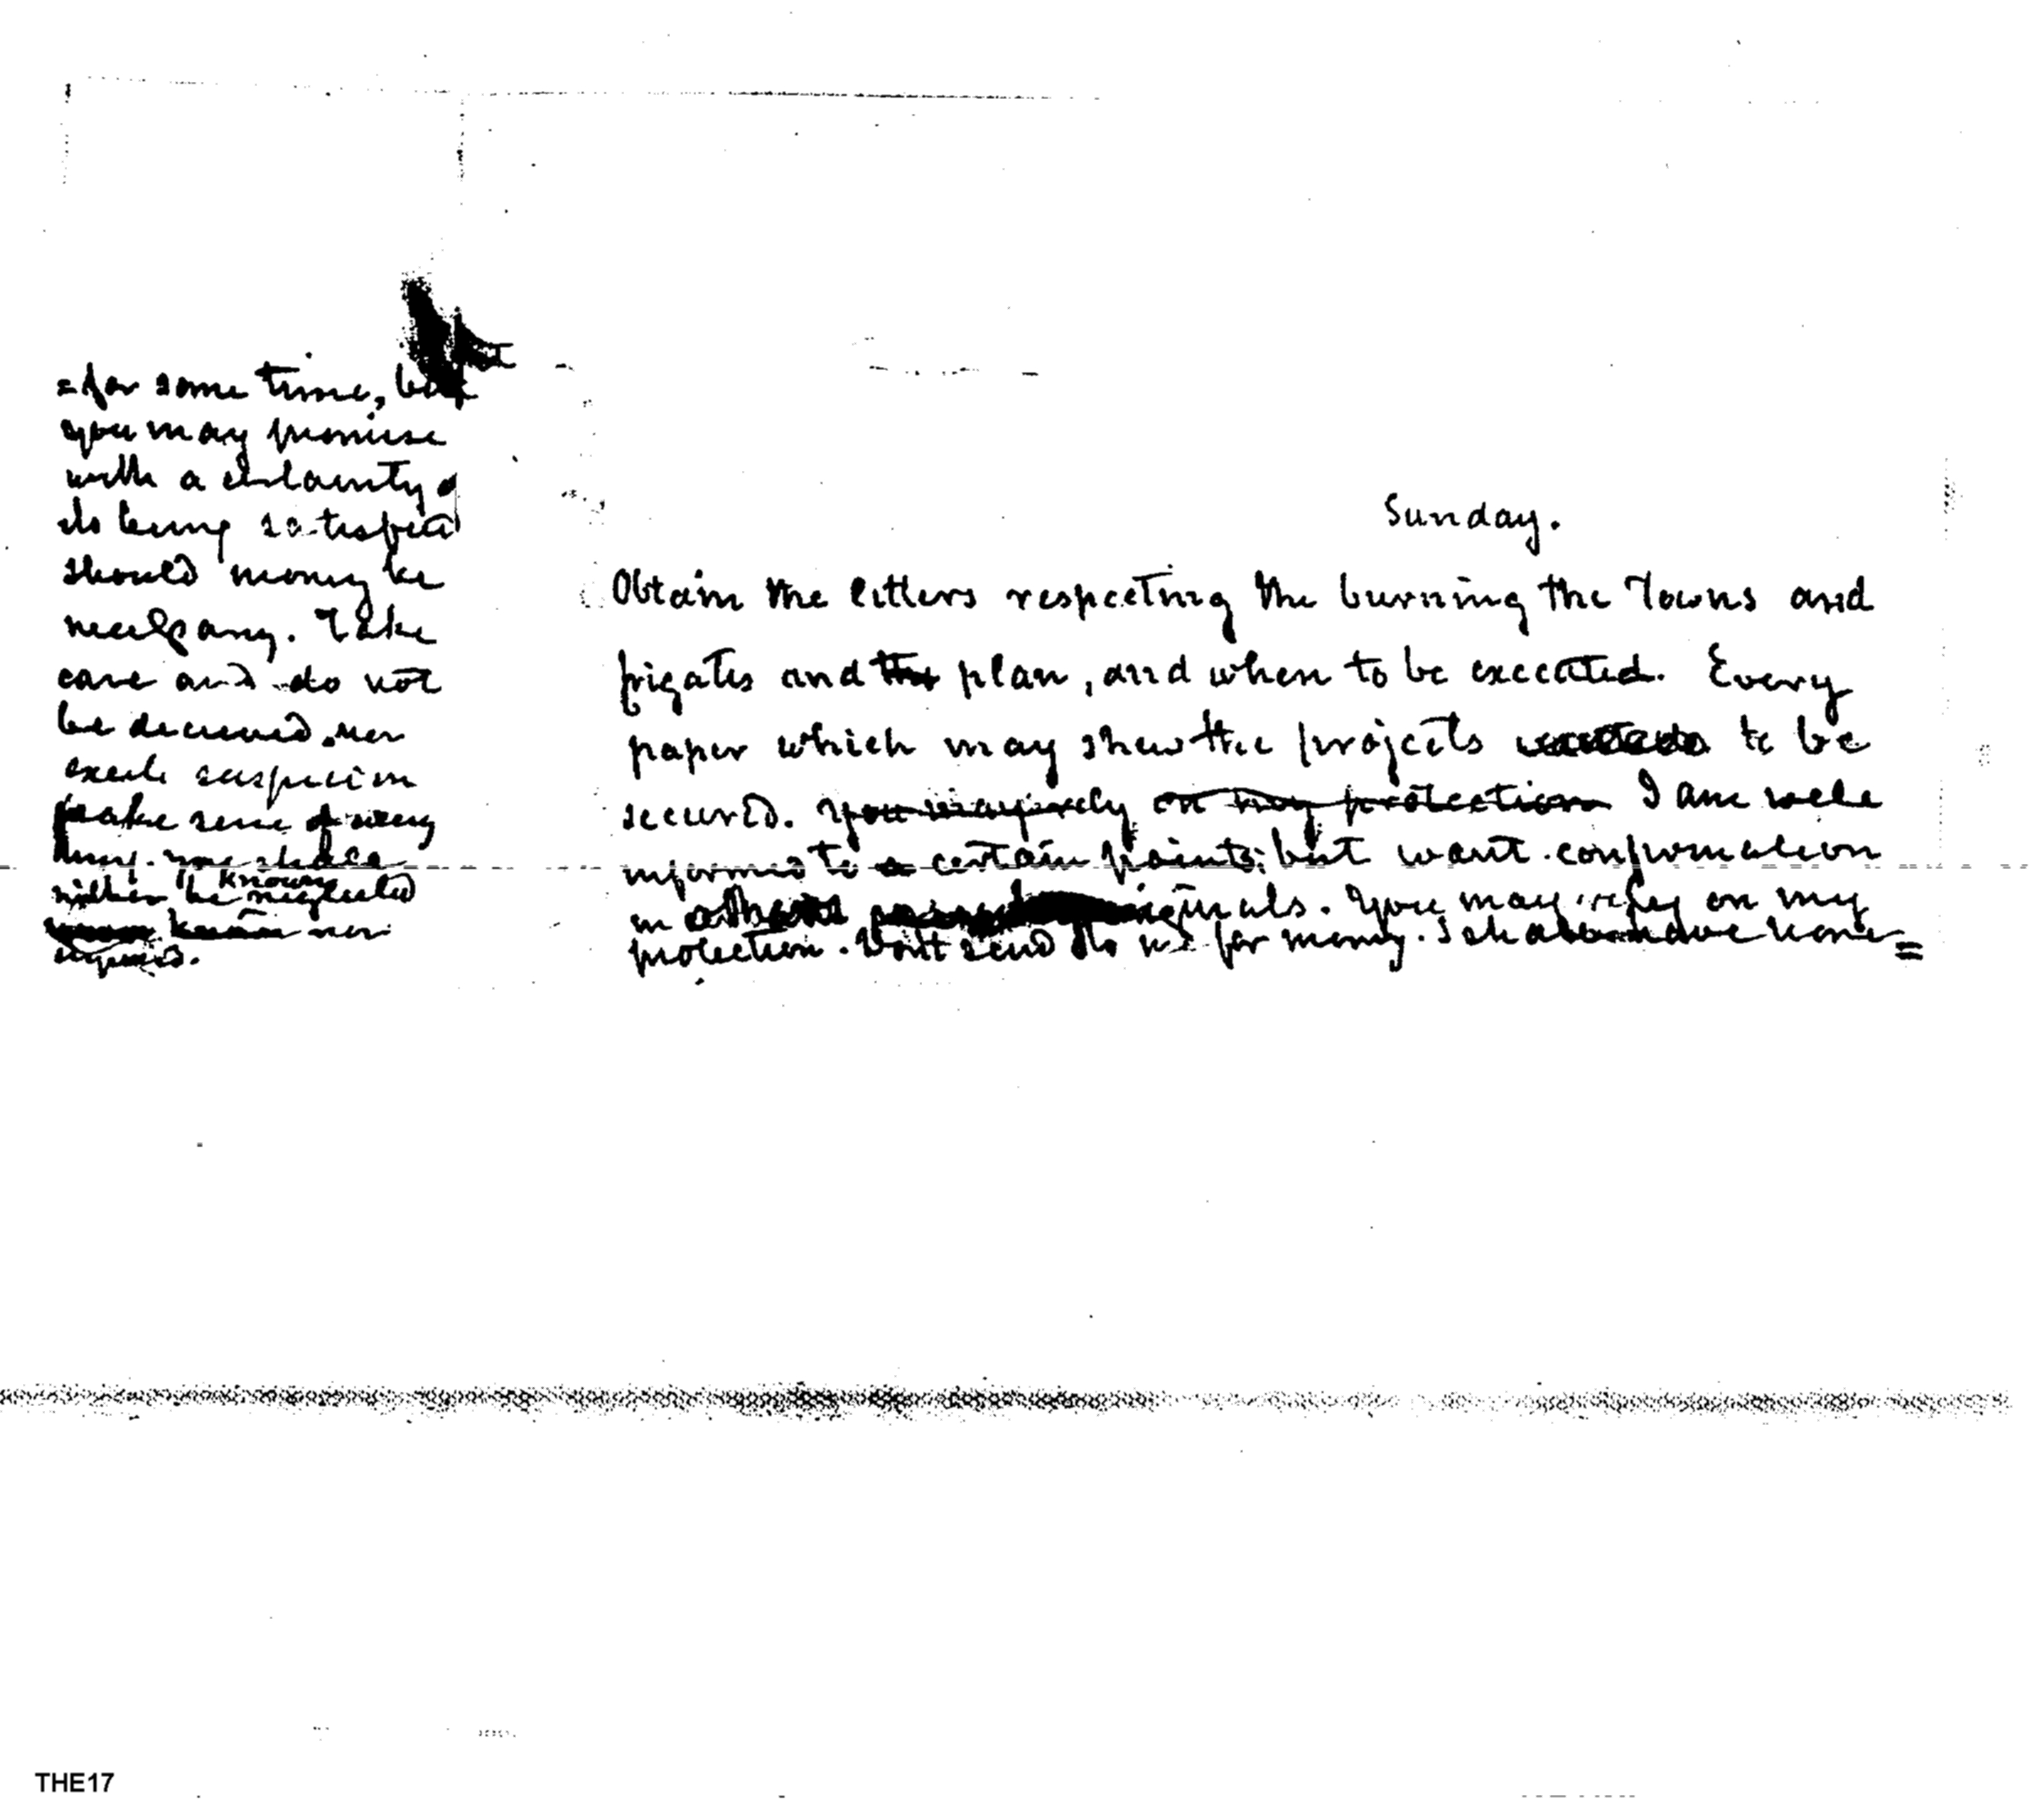 Sunday.
Obtain the letters respecting the burning the Towns and
frigates and the plan, and when to be executed. Every
paper which may shew the projects to be
secured. you may rely on my protection I am well
informed to a certain points: but want confirmation
in originals. You may rely on my
protection. Dont send to me for money. I shall have none =
= for some time, but
you may promise
with a certainty of
its being satisfied
should money be
necessary. Take
care and do not
be deceived. nor
excite suspicion
make sure of every
thing. you shall
neither be known neglected
known nor
exposed.
THE17